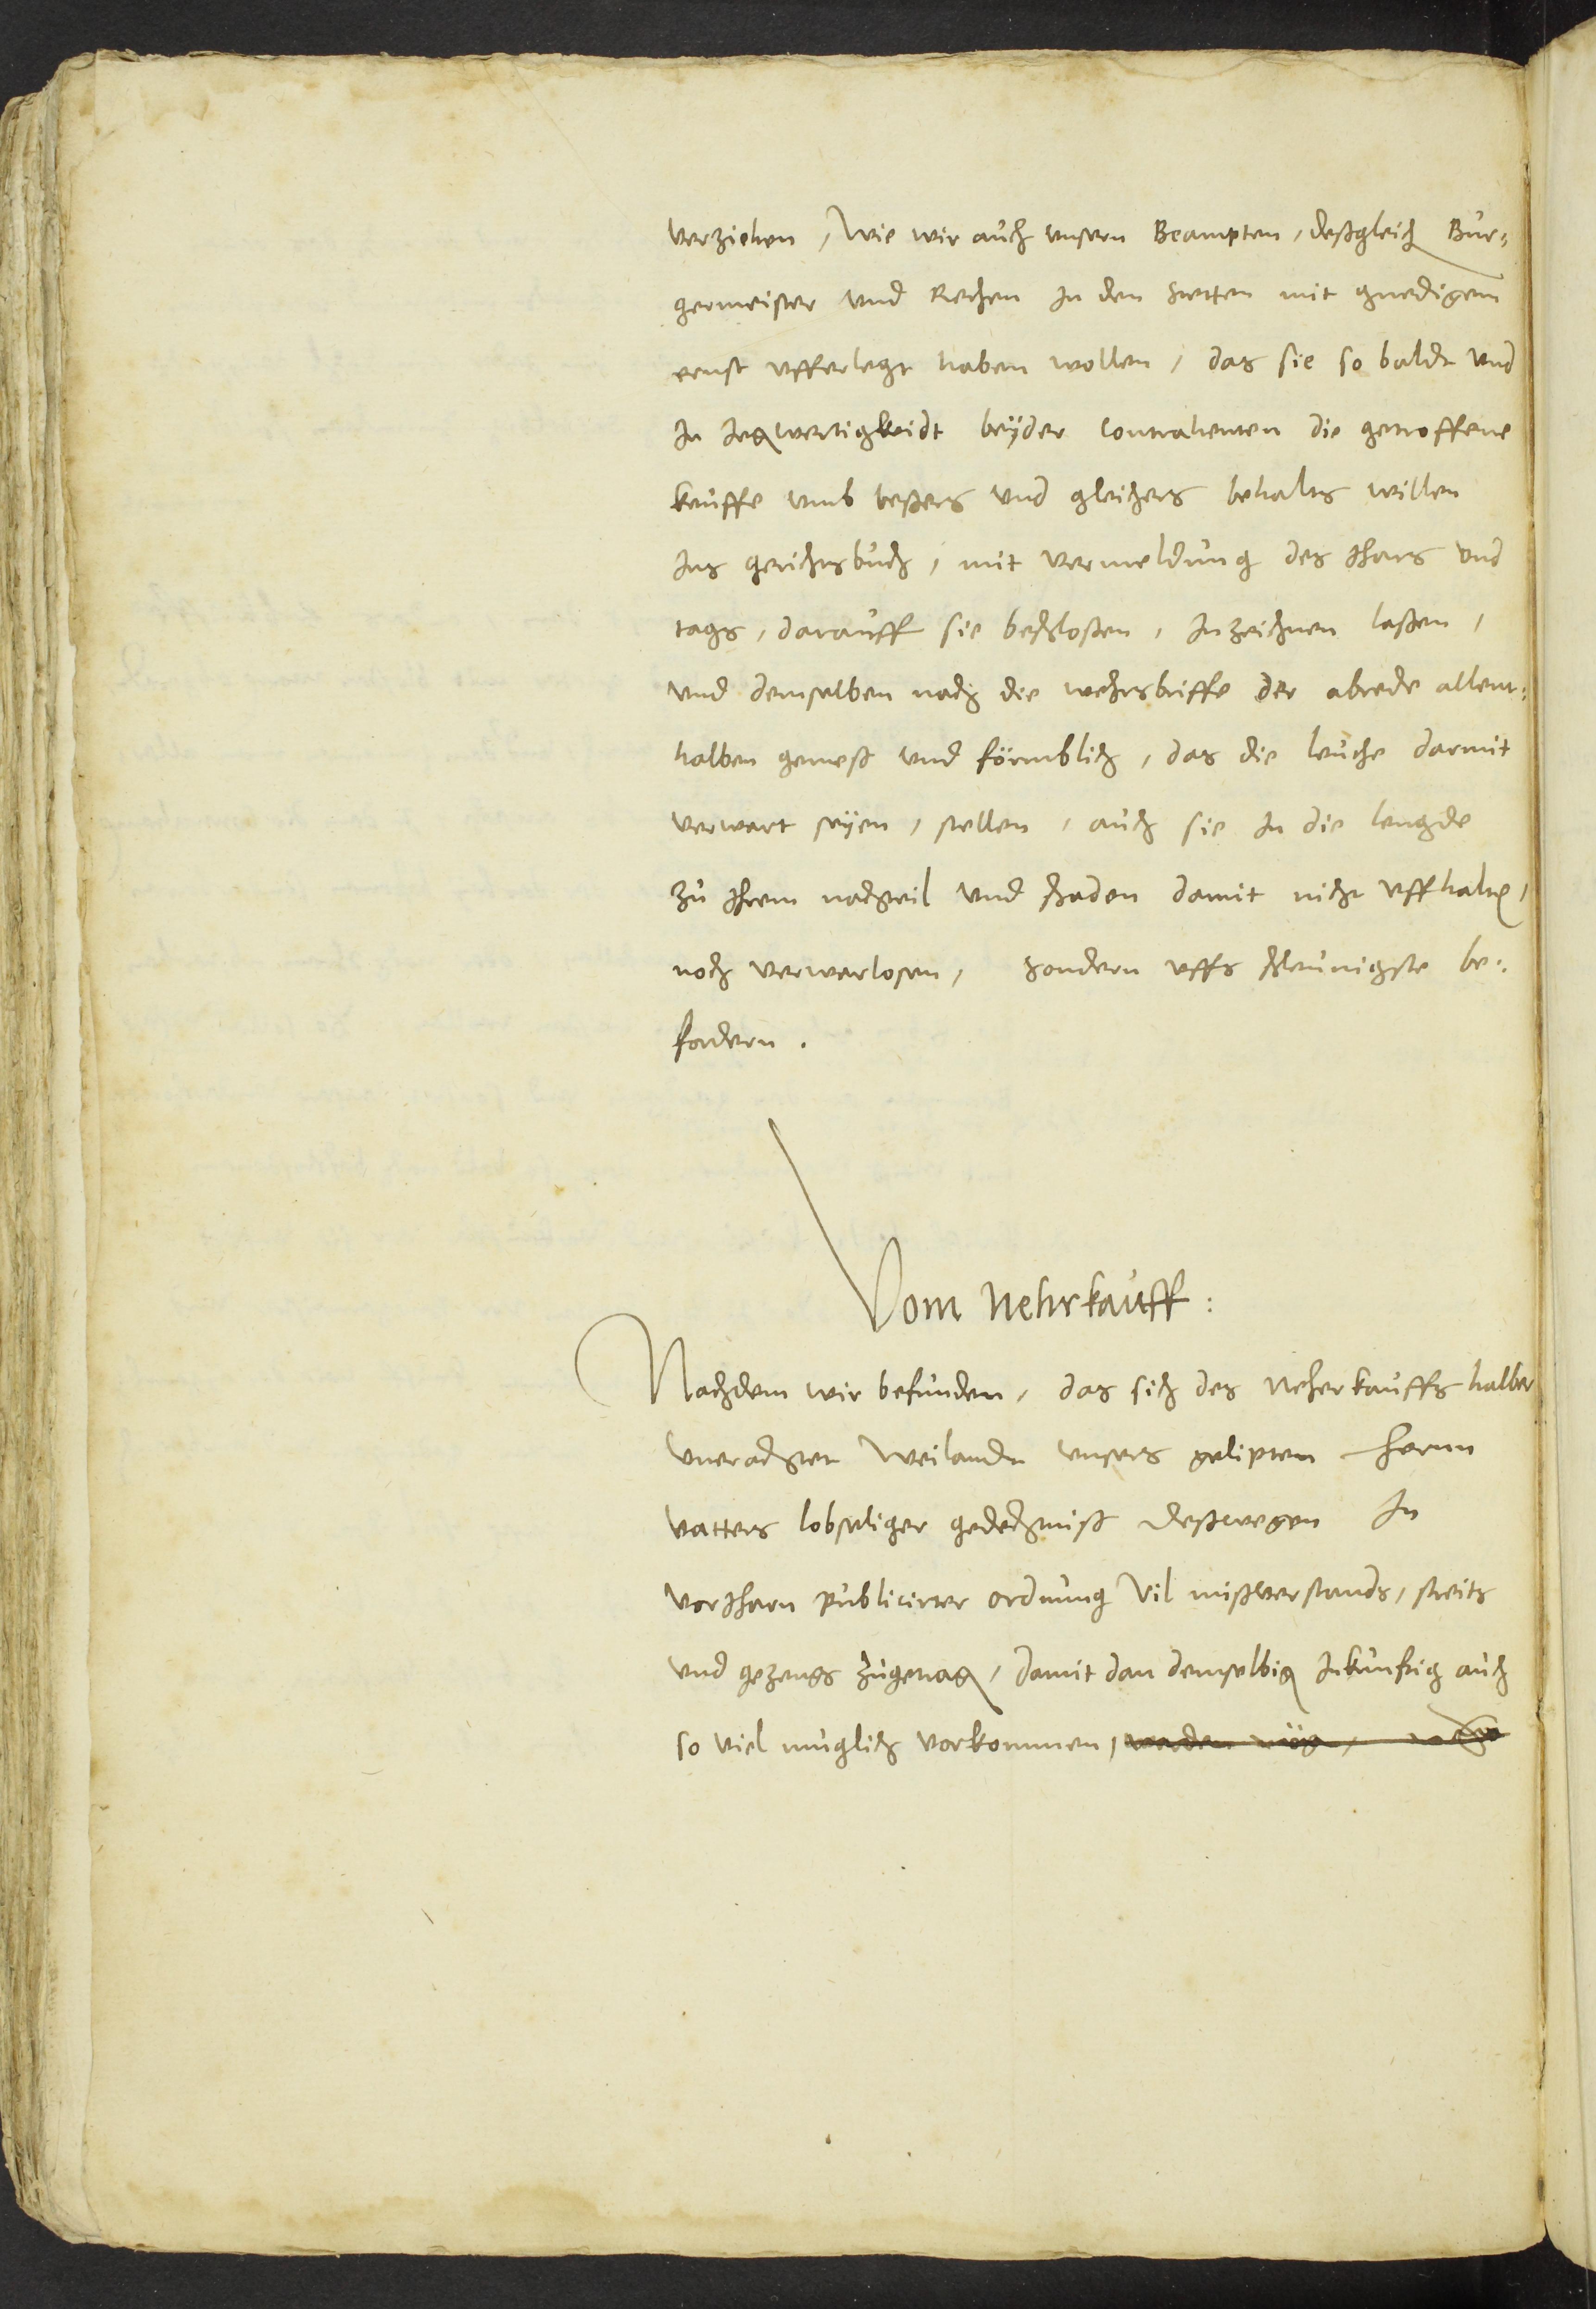 verziehen, Wie wir auch unsern Beampten, deßgleich Bur=
germeister und Rethen In den Stetten mit gnedigem
ernst ufferlegt haben wollen, das sie so baldt und
In Jegwertigkeidt beÿder Contrahenten die getroffene
keuffe umb bessers und gleichers behalts willen
Ins gerichtsbuch, mit vermeldung des Jhars und
tags, darauff sie beschlossen, Inzeichnen lassen,
und demselben nach die wehrsbriffe der abrede allent=
halben gemeß und förmblich, das die leuthe darmit
verwart seÿen, stellen, auch sie In die lengde
zu Jhrem nachteil und schaden damit nicht uffhalten,
noch verwarlosen, sondern uffs schleunigste be=
fordern.
Vom Nehrkauff:
Nachdem wir befunden, das sich des Neherkauffs halber
uneracht Weilandt unsers geliepten Herrn
vatters lobseliger gedechtnuß deßwegen In
vor Jharn publicirter ordnung vil mißverstands, streits
und gezengs zugetragen, damit dan demselbigen Inkunftig auch
so viel muglich vorkommen, werden mög,